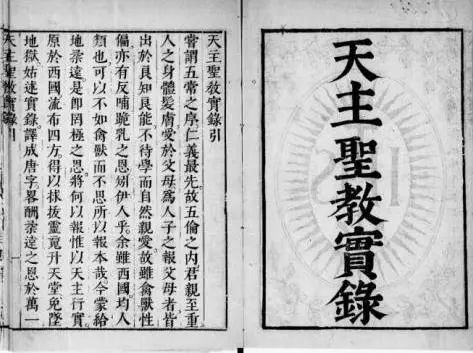 天主聖教實錄
天主聖教實錄引
嘗謂五常之序仁義最先故五倫之內君親至重
人之身體髮膚受於父母為人子之報父母者皆
出於良知良能不待學而自然親愛故雖禽獸性
偏亦有反哺跪乳之恩矧伊人乎余雖西國均人
類也可以不如禽獸而不思所以報本哉今蒙給
地柔遠是即罔極之恩將何以報惟以天主行實
原於西國流布四方得以捄拔靈魂升天堂免墜
地獄姑述實錄譯成唐字畧酬柔遠之恩於萬一
天主聖教實錄引